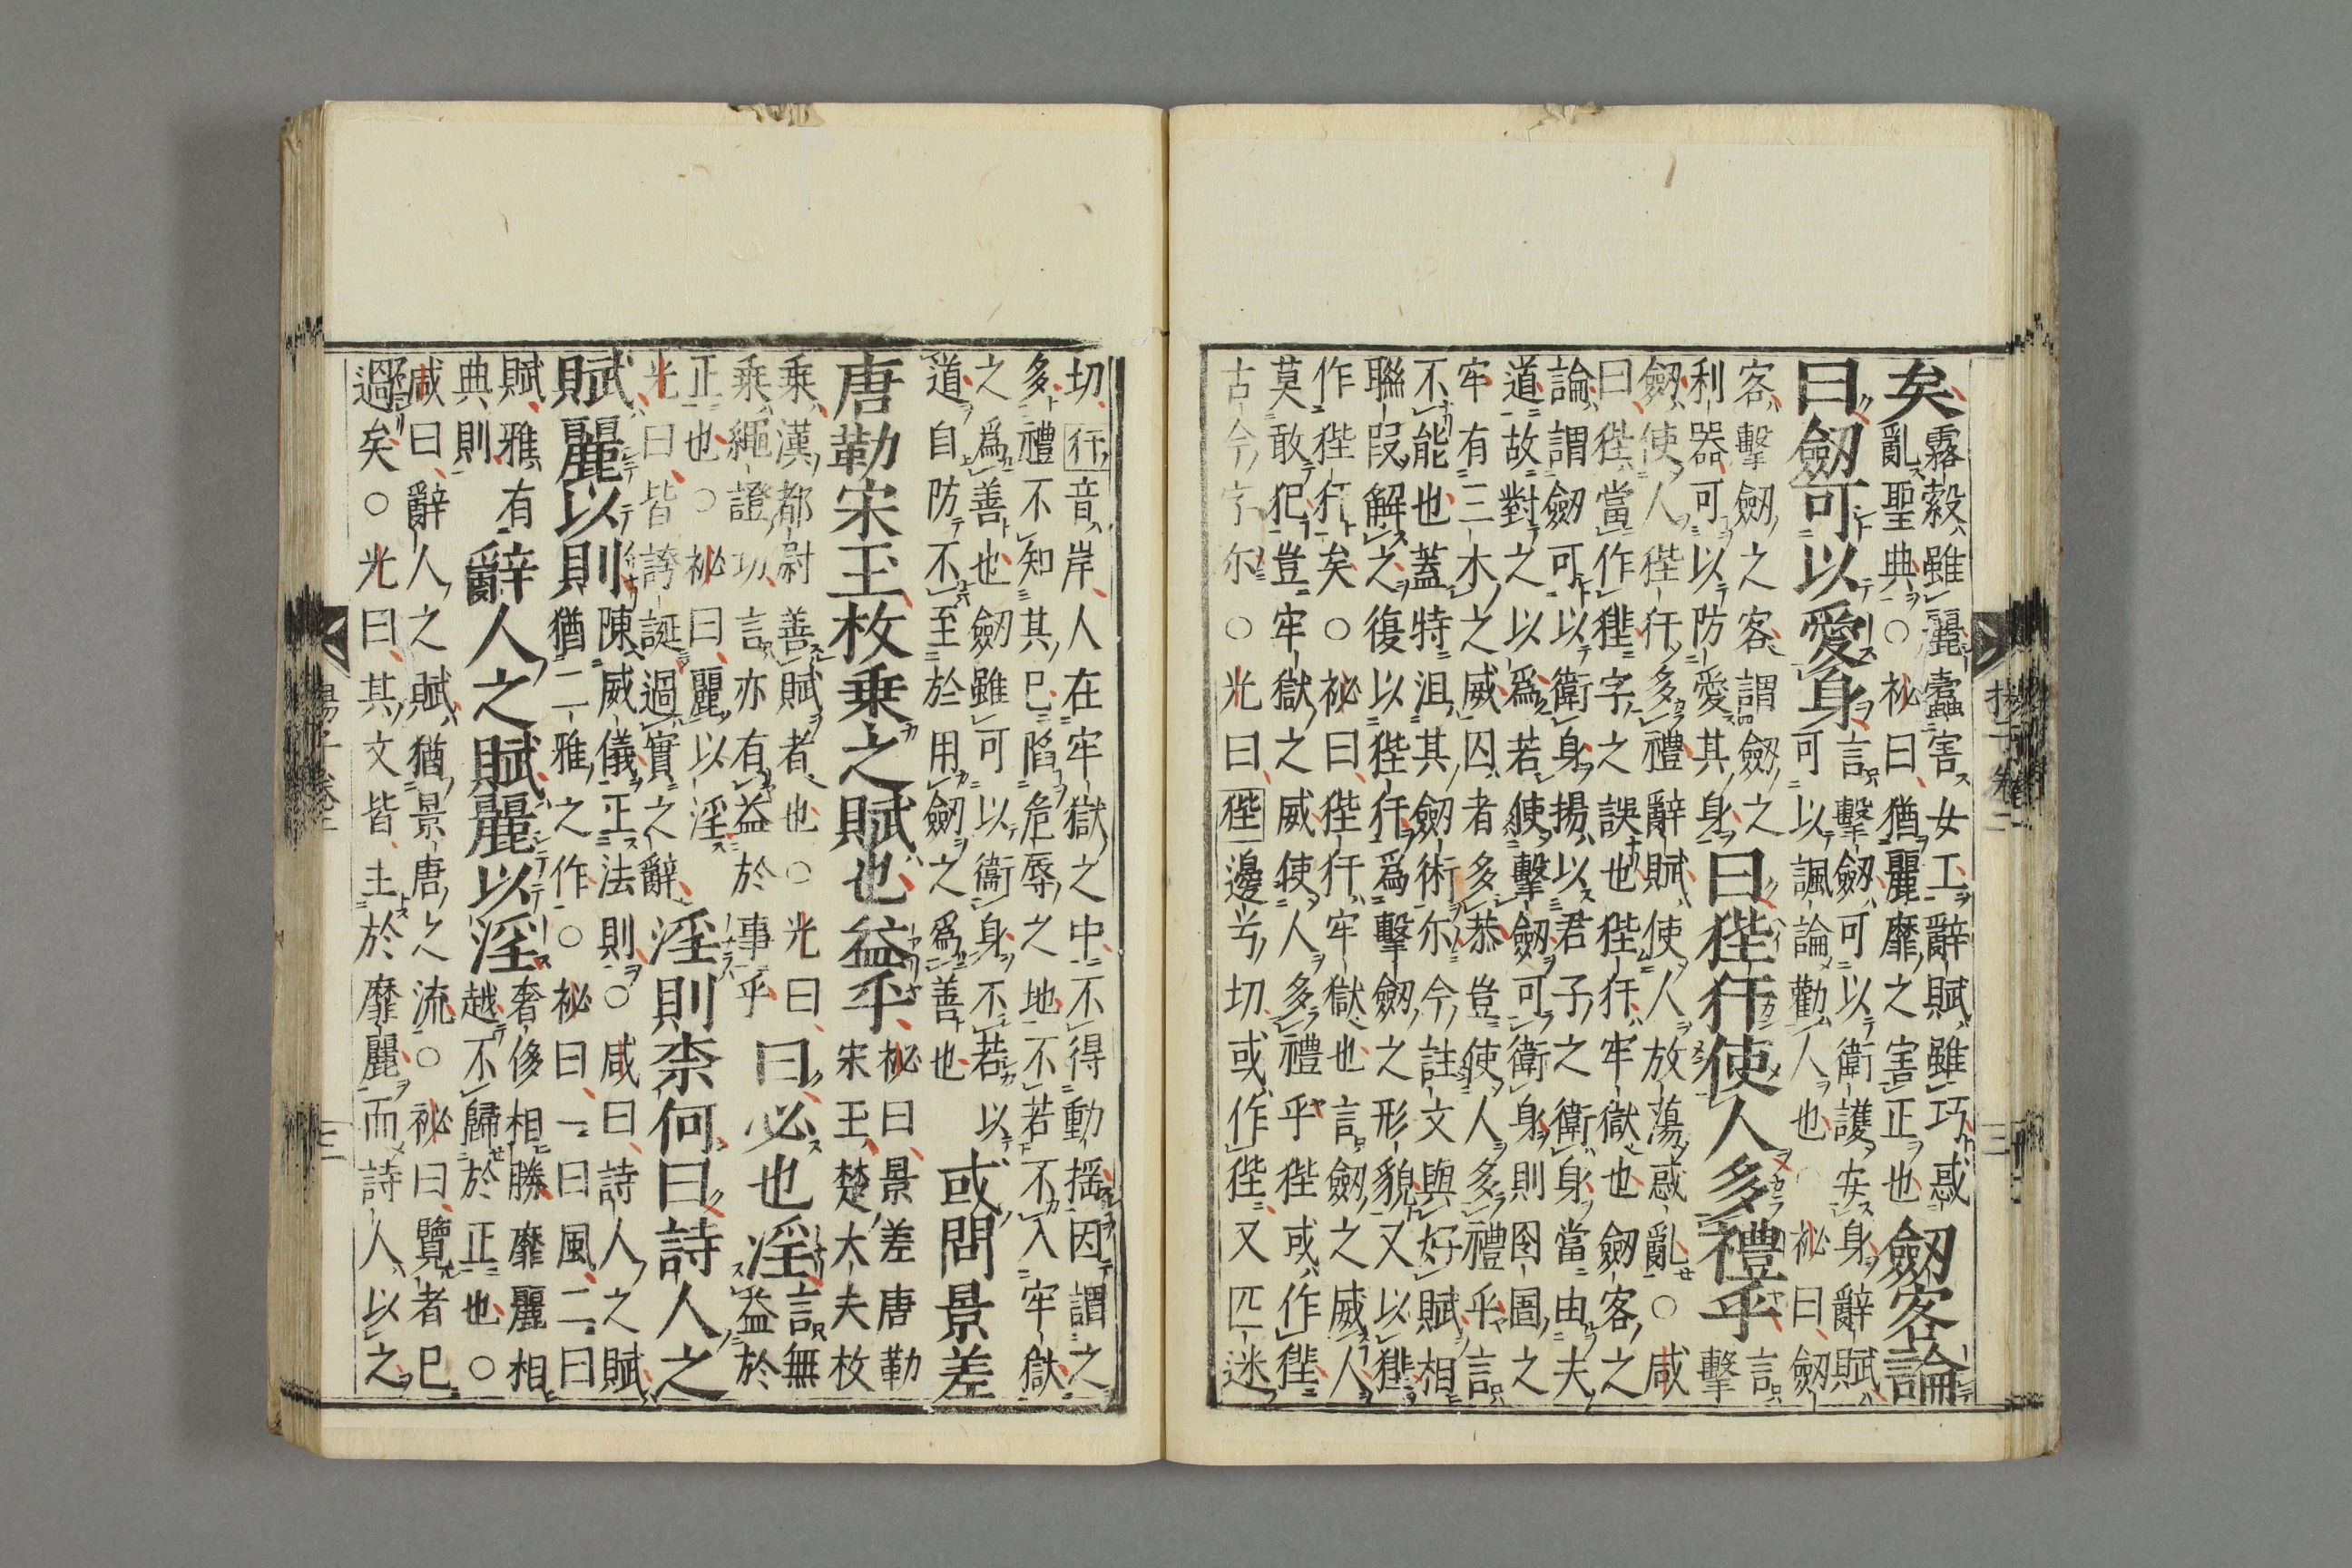 矣霧縠雖麗蠹害女工辭賦雖巧惑
亂聖典○祕曰猶麗靡之害正也劒客論
曰劒可以愛身言擊劒可以衛護安身辭賦
可以諷論勸人也○祕曰劒
客擊劒之客客謂劒之
利器可以防愛其身曰狴犴使人多禮乎言擊
劒使人狴犴多禮辭賦使人放蕩惑亂○咸
曰狴當作㹃字之誤也狴犴牢獄也劒客之
論謂劒可以衛身揚以君子之衛身當由夫
道故對之以爲若使擊劒可衛身則囹圄之
牢有三木之威囚者多恭豈使人多禮乎言
不能也蓋特沮其劒術尔今註文與好賦相
聯叚解之復以狴犴爲擊劒之形貌又以㹃
作狴犴矣○祕曰狴犴牢獄也言劒之威人
莫敢犯豈牢獄之威使人多禮乎狴或作㹃
古今字尔○光曰狴邊兮切或作狴又匹迷
切犴音岸人在牢獄之中不得動揺因謂之
多禮不知其已陷危辱之地不若不入牢獄
之爲善也劒雖可以衞身不若以
道自防不至於用劒之爲善也或問景差
唐勒宋玉枚乗之賦也益乎祕曰景差唐勒
宋玉楚大夫枚
乗漢都尉善賦者也○光曰
乗繩證切言亦有益於事乎曰必也淫言無
益於
正也○祕曰麗以淫
光曰皆誇誕過實之辭淫則柰何曰詩人之
賦麗以則陳威儀正法則○咸曰詩人之賦
猶二雅之作○祕曰一曰風二曰
賦雅有
典則辭人之賦麗以淫奢侈相勝靡麗相
越不歸於正也○
咸曰辭人之賦猶景唐之流○祕曰覽者已
過矣○光曰其文皆主於靡麗而詩人以之